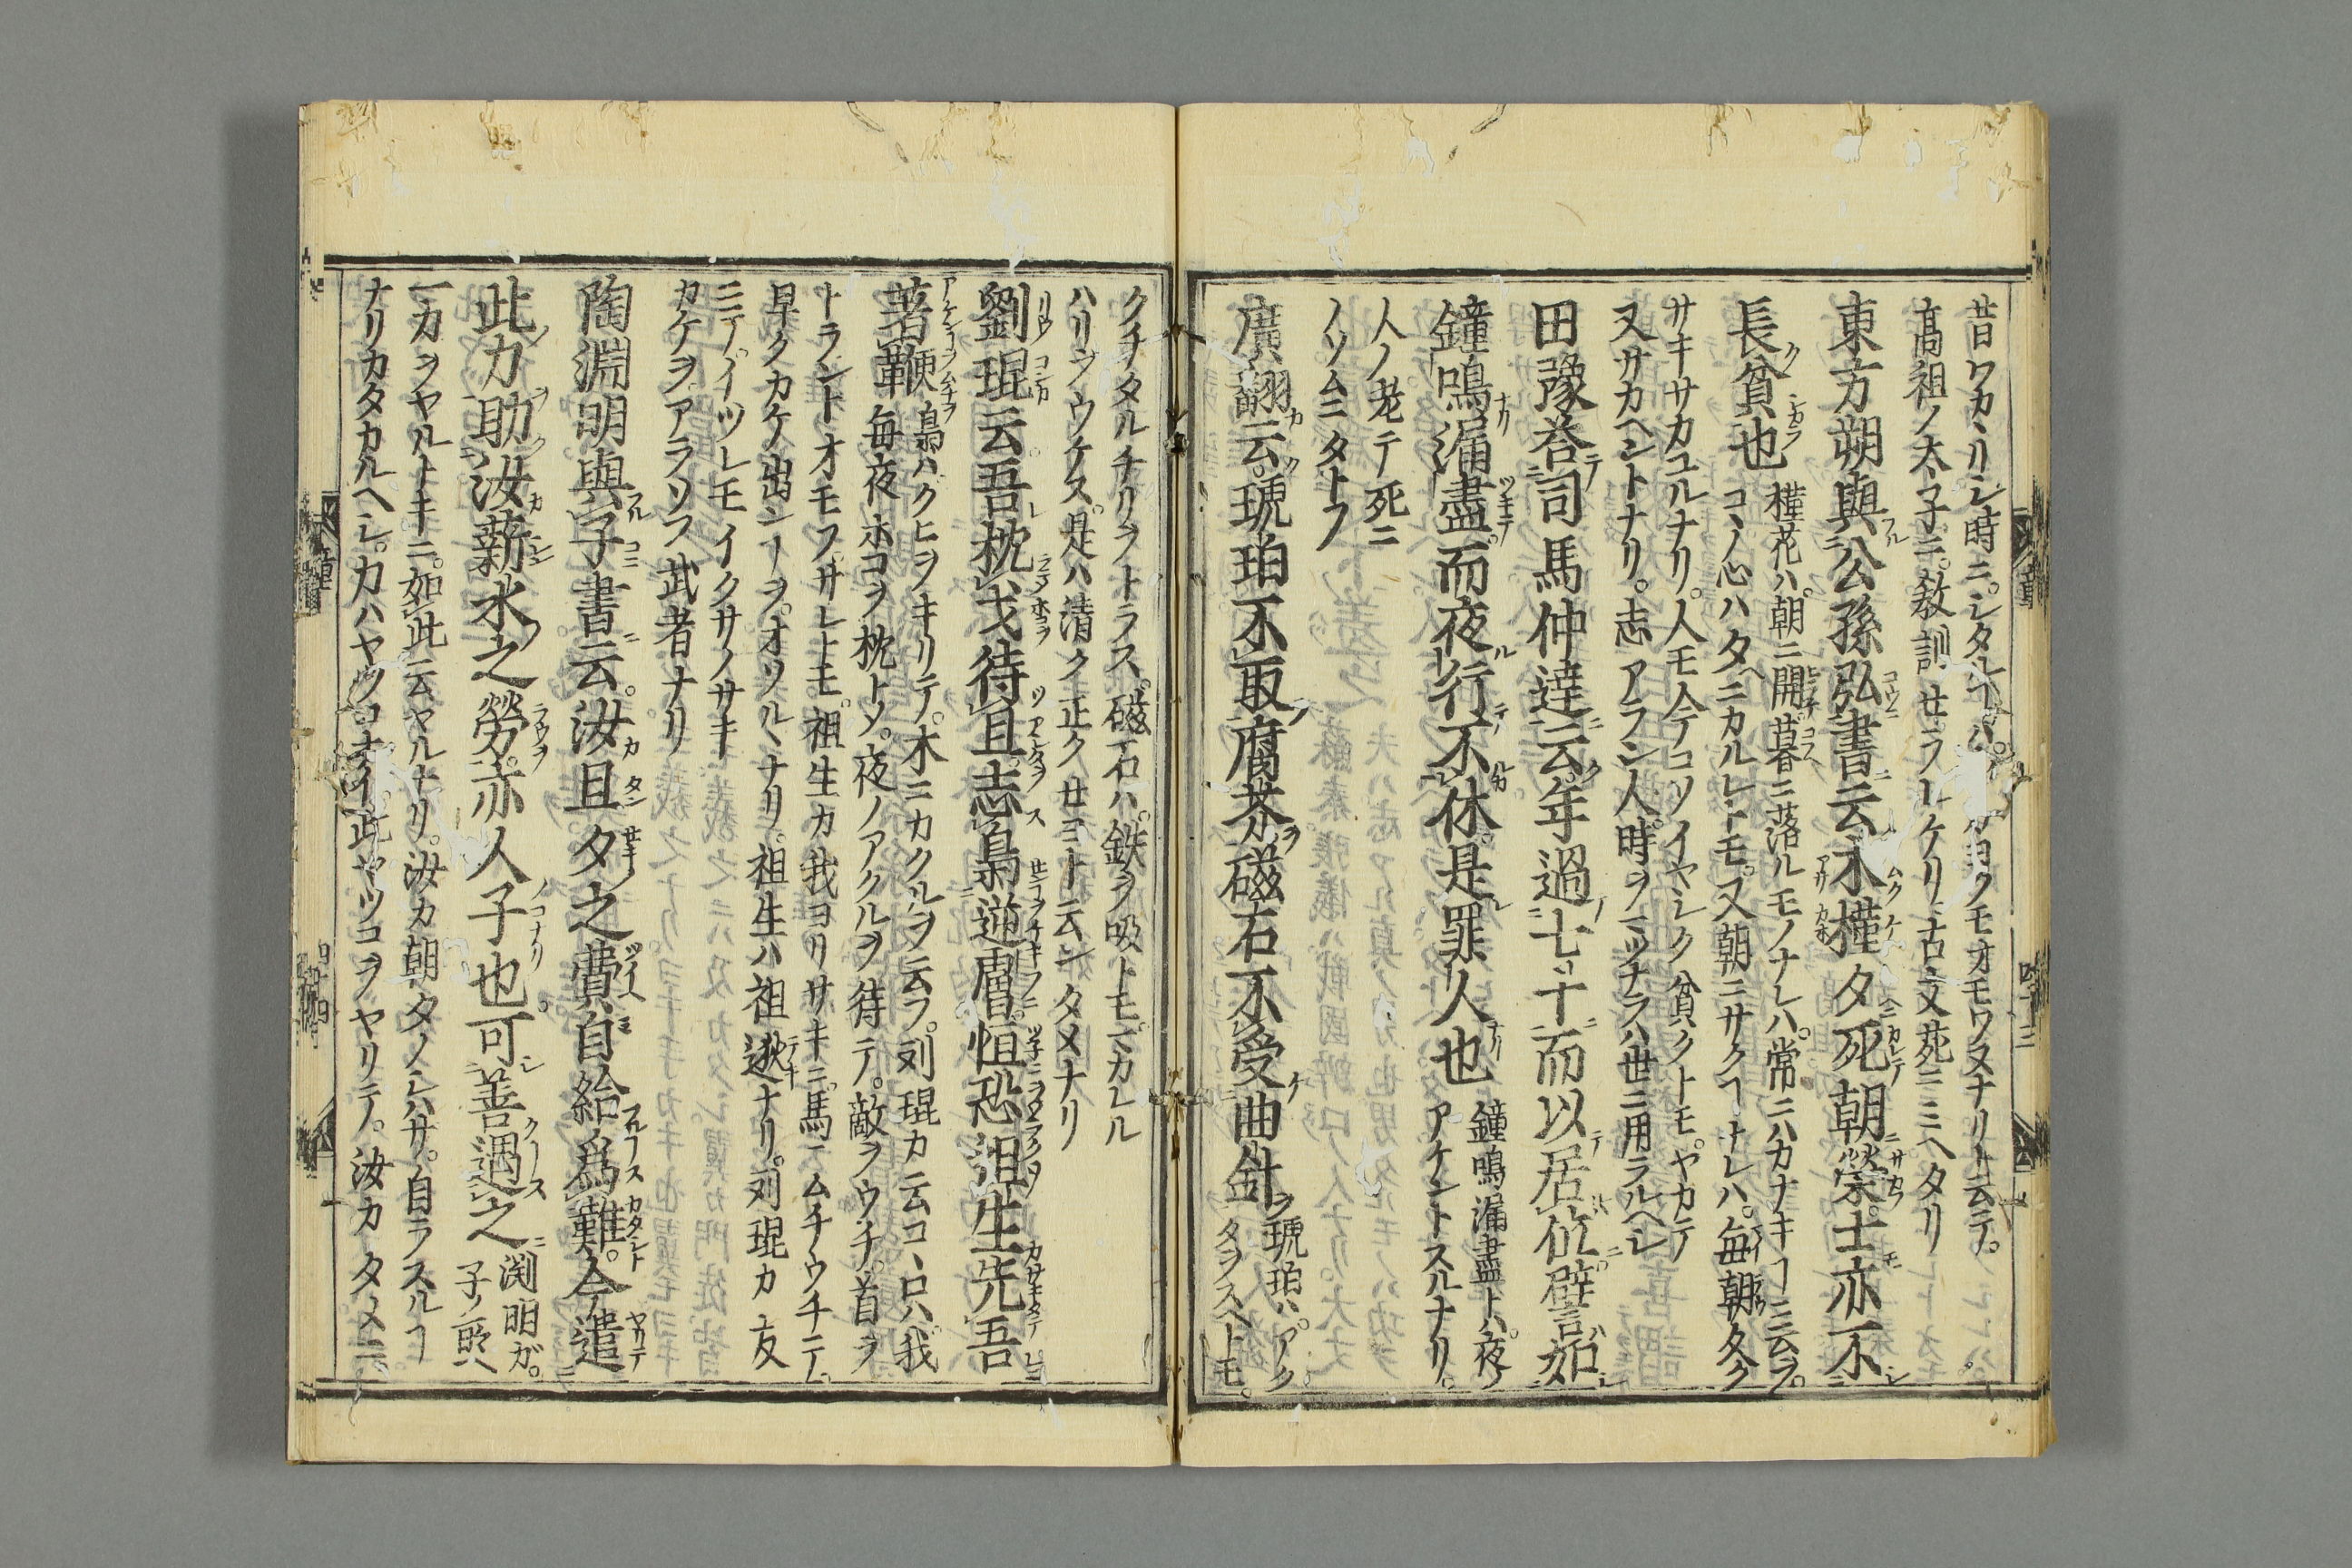 昔ワカヽリシ時ニ。シタルヿハ。クモオモワヌナリト云テ。
髙祖ノ太子ニ。教訓セラレケリ古文苑ニミヘタリ
東方朔與公孫弘書云木槿夕死朝榮士亦不
長貧也 槿花ハ。朝ニ開。暮ニ落ルモノナレハ。常ニハカナキヿニ云フ。
コヽノ心ハタヘニカルレトモ。又朝ニサクヿナレハ。毎朝夕ク
サキサカユルナリ。人モ今コソイヤシク貧クトモ。ヤカテ
又サカヘントナリ。志アラン人。時ヲ一ツナラハ世ニ用ラルヘシ
田豫荅司馬仲達云年過七十而以居位譬如
鐘鳴漏盡而夜行不休是罪人也 鐘鳴漏盡トハ。夜ノ
アケントスルナリ。
人ノ老テ死ニ
ノソムニタトフ
廣翻云琥珀不取腐芥磁石不受曲針 琥珀ハ。アク
タヲスヘトモ。
クチタルチリヲトラス。磁石ハ。鉄ヲ吸トモ。マカレル
ハリヲウケス。是ハ清ク正クセヨト云ンタメナリ
劉琨云吾枕戈待旦志梟逆虜恒恐祖生先吾
著鞭 梟ハクヒヲキリテ。木ニカクルヲ云フ。刘琨カ云コヽロハ。我
毎夜ホコヲ枕トソ。夜ノアクルヲ待テ。敵ヲウチ。首ヲ
トラントオモフ。サレトモ。祖生カ我ヨリサキニ。馬ニムチウチテ。
早クカケ出ンヿヲ。オソルヽナリ。祖生ハ祖逖ナリ。刘琨カ友
ニテ。イツレモイクサノサキ
カケヲアラソフ武者ナリ
陶淵明與子書云。汝旦夕之費自給爲難。今遣
此力助汝薪水之勞。亦人子也。可善遇之 渕明ガ。
子ノ所ヘ
一力ヲヤルトキニ。如此云ヤルナリ。汝カ朝夕ノシハサ。自ラスルヿ
ナリカタカルヘシ。力ハヤツコナイ此ヤツコヲヤリテ。汝カタメニ
童
四十三
童
四十四